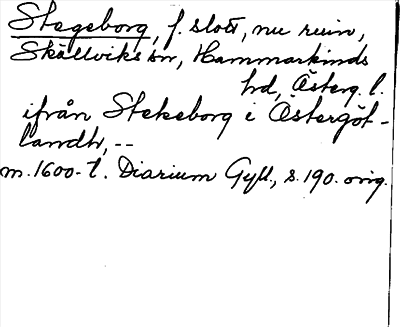 Stegeborg, f. slott, nu ruin,
Skällviks sn, Hammarkinds
hd, Österg. l.
ifrån Stekeborg i Östergöt-
landh, --
m. 1600-t. Diarium Gyll., s. 190. orig.